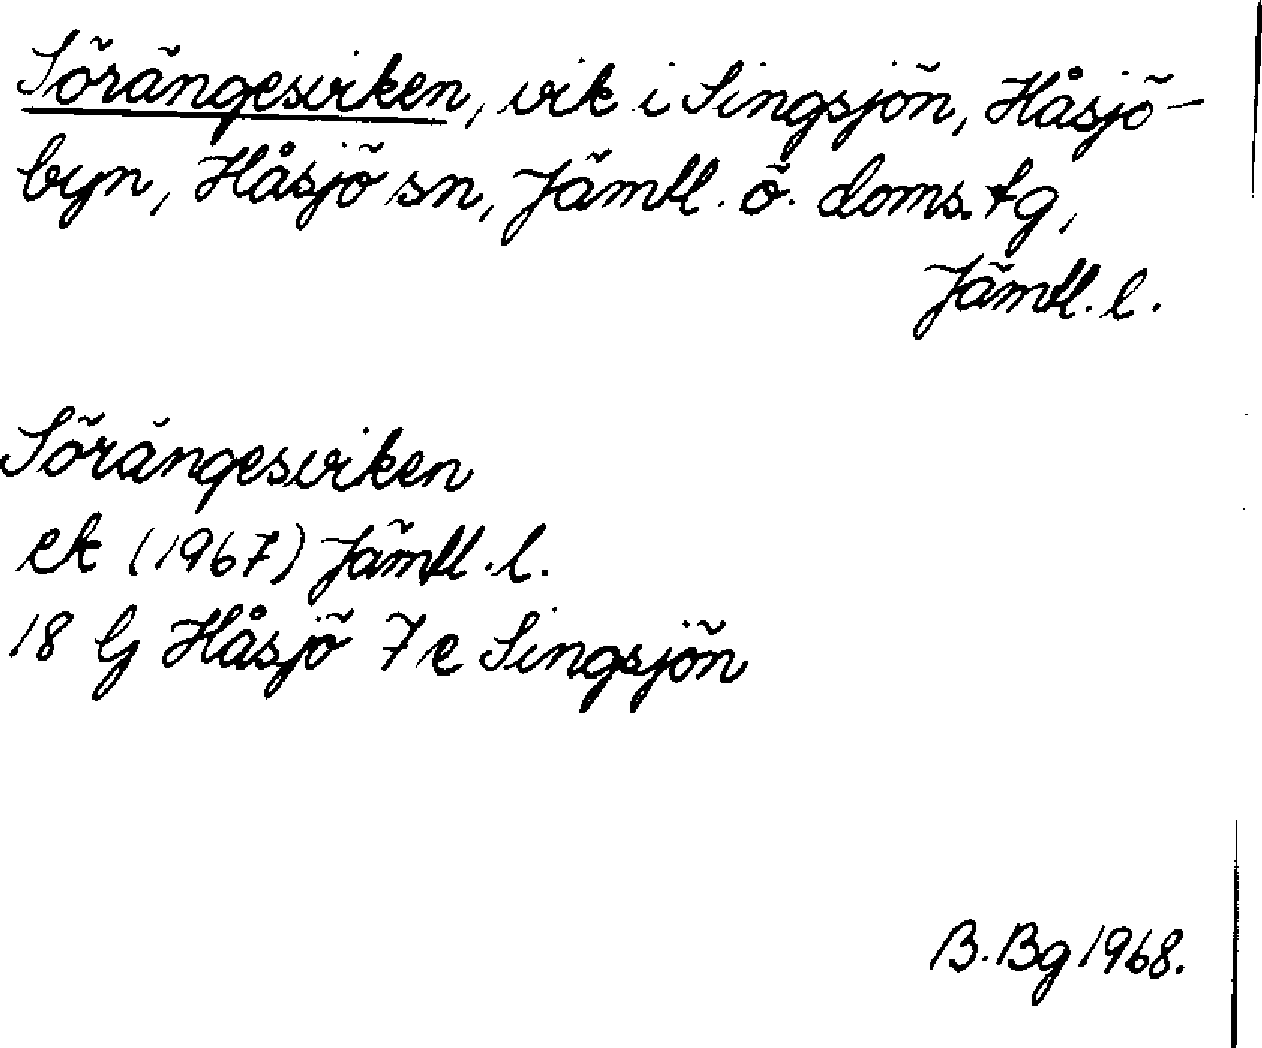 Sörängesviken, vik i Singsjön, Håsjö-
byn, Håsjö sn, Jämtl. ö. doms. tg,
Jämtl. l.
Sörängesviken
ek (1967) Jämtl. l.
18 G Håsjö 7 e Singsjön
B. Bg 1968.